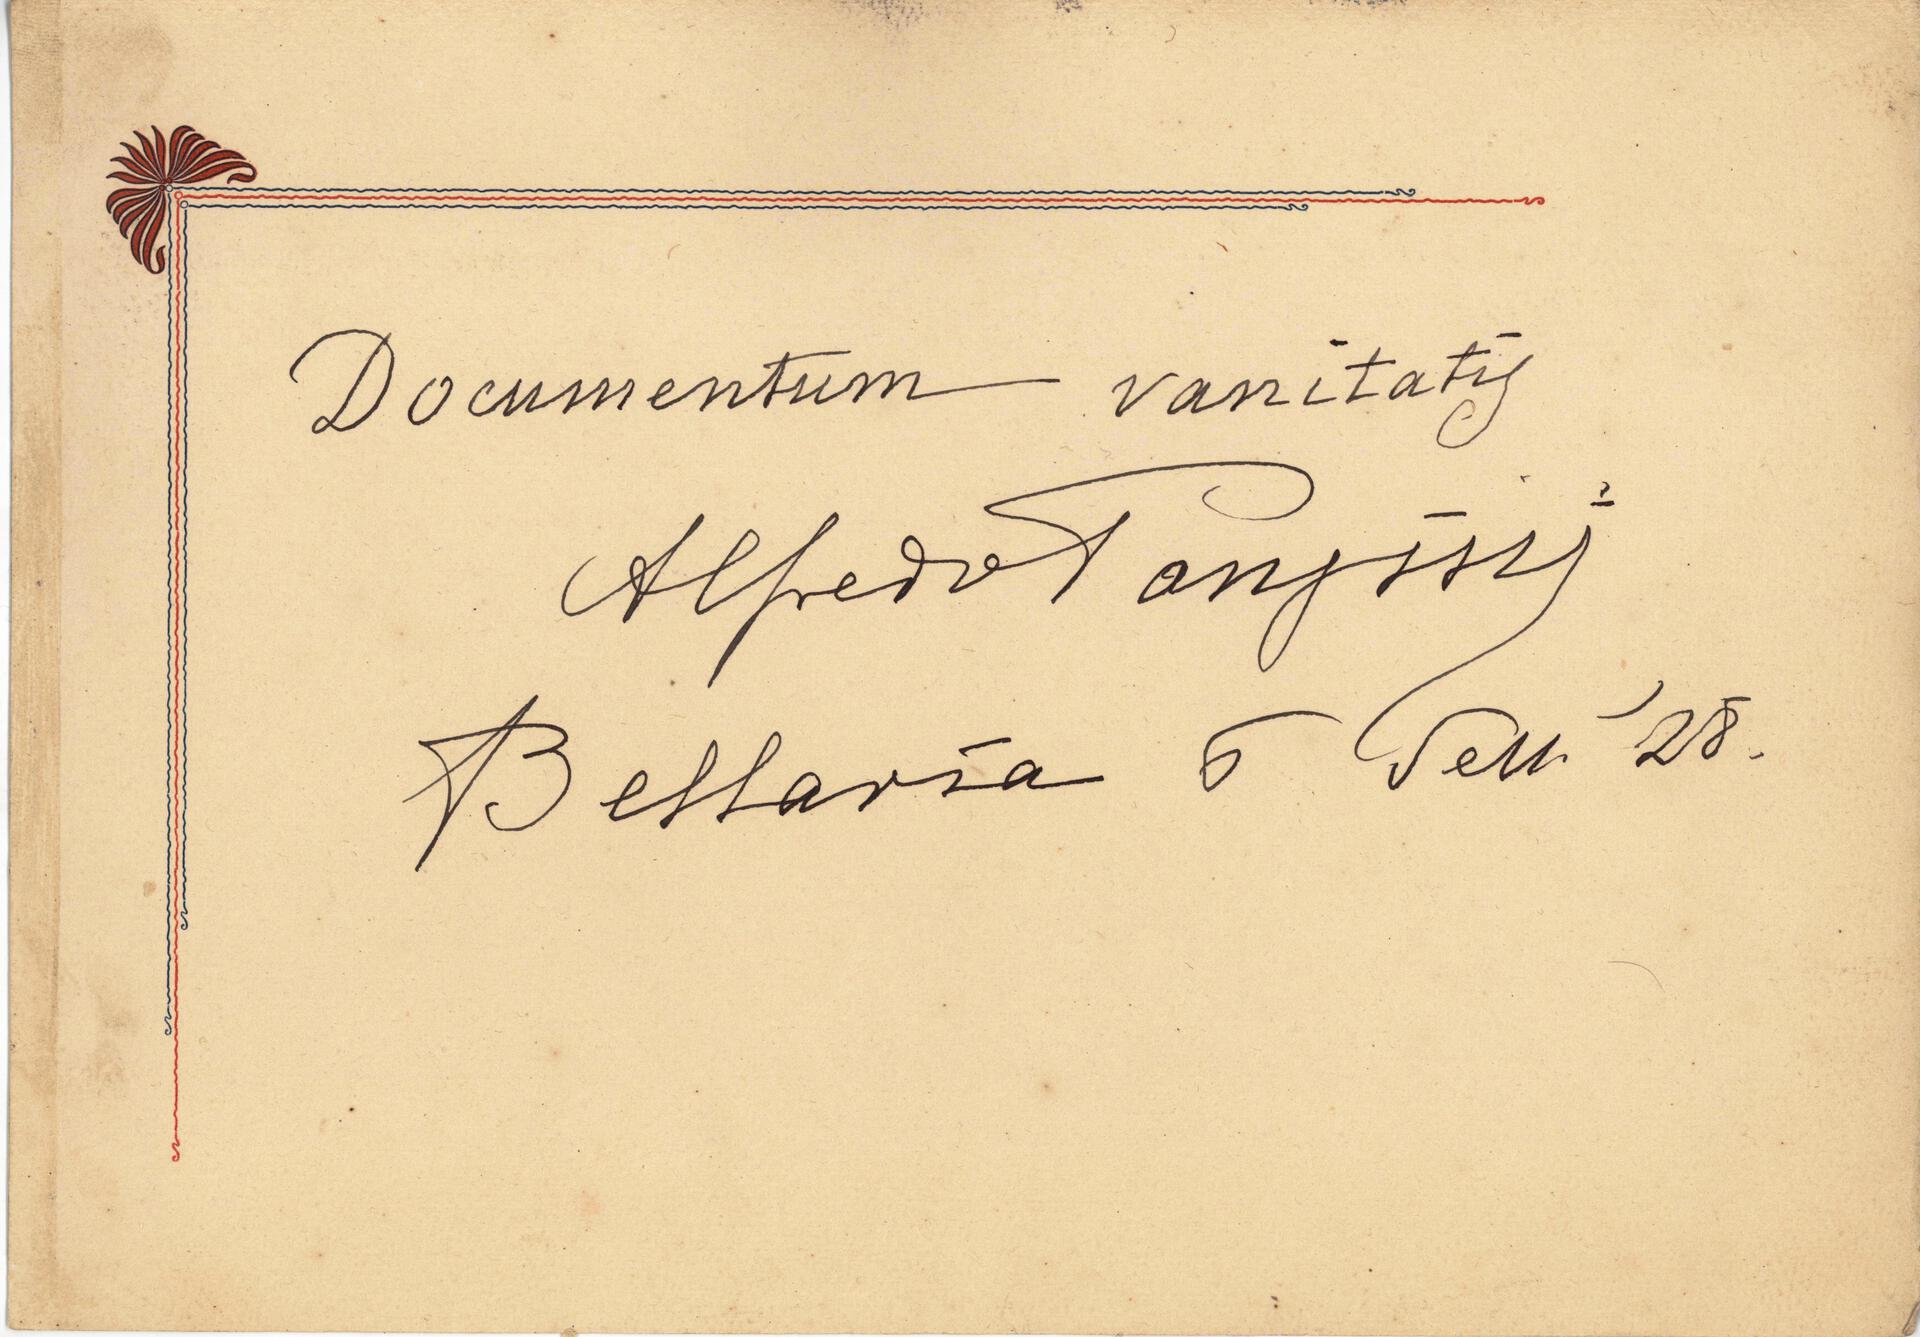 Documentum vanitatis
Alfredo Panzini
Bellaria 6 Sett. '28.